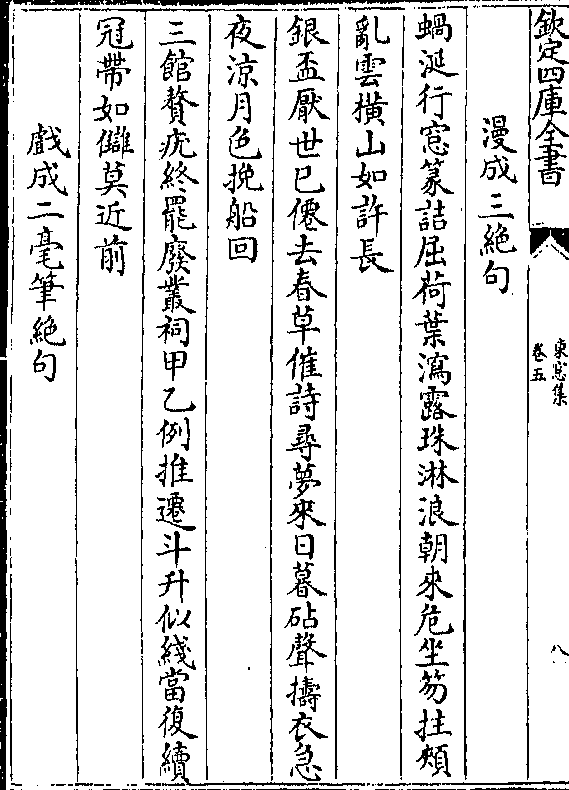 欽定四庫全書
東窓集
卷五
八
漫成三絶句
蝸涎行窓篆詰屈荷葉瀉露珠淋浪朝來危坐笏拄頰
亂雲横山如許長
銀盃厭世已僊去春草催詩尋夢來日暮砧聲擣衣急
夜涼月色挽船回
三館贅疣終罷廢叢祠甲乙例推遷斗升似綫當復續
冠帶如讎莫近前
戲成二毫筆絶句